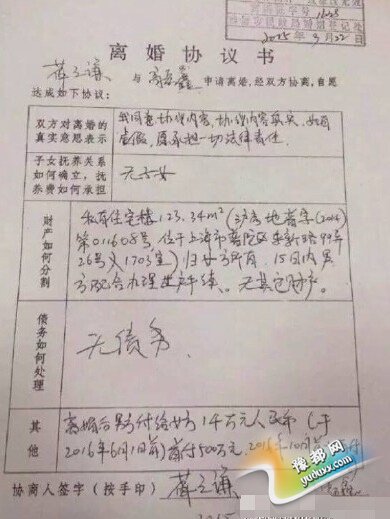 2015年9月22日
离婚协议书
与 申请离婚,经双方协商,自愿
达成如下协议:
双方对离婚的
真实意思表示
我同意协议内容,协议内容真实,如有
虚假,愿承担一切法律责任.
子女抚养关系
如何确立,抚
养费如何承担
无子女
财产如何分割
私有住宅楼123.34m²(沪房地普字(2014)
第011608号,位于上海市普陀区 路99弄
26号 1703室)归女方所有,15日内男
方配合办理过户手续。无其它财产。
债务如何处理
无债务.
其他
离婚后男方付给女方1千万元人民币(于
2016年6月1日前)首付500万元,2016年10月
协商人签字(按手印)
2015
豫都网
YUDUXX.COM